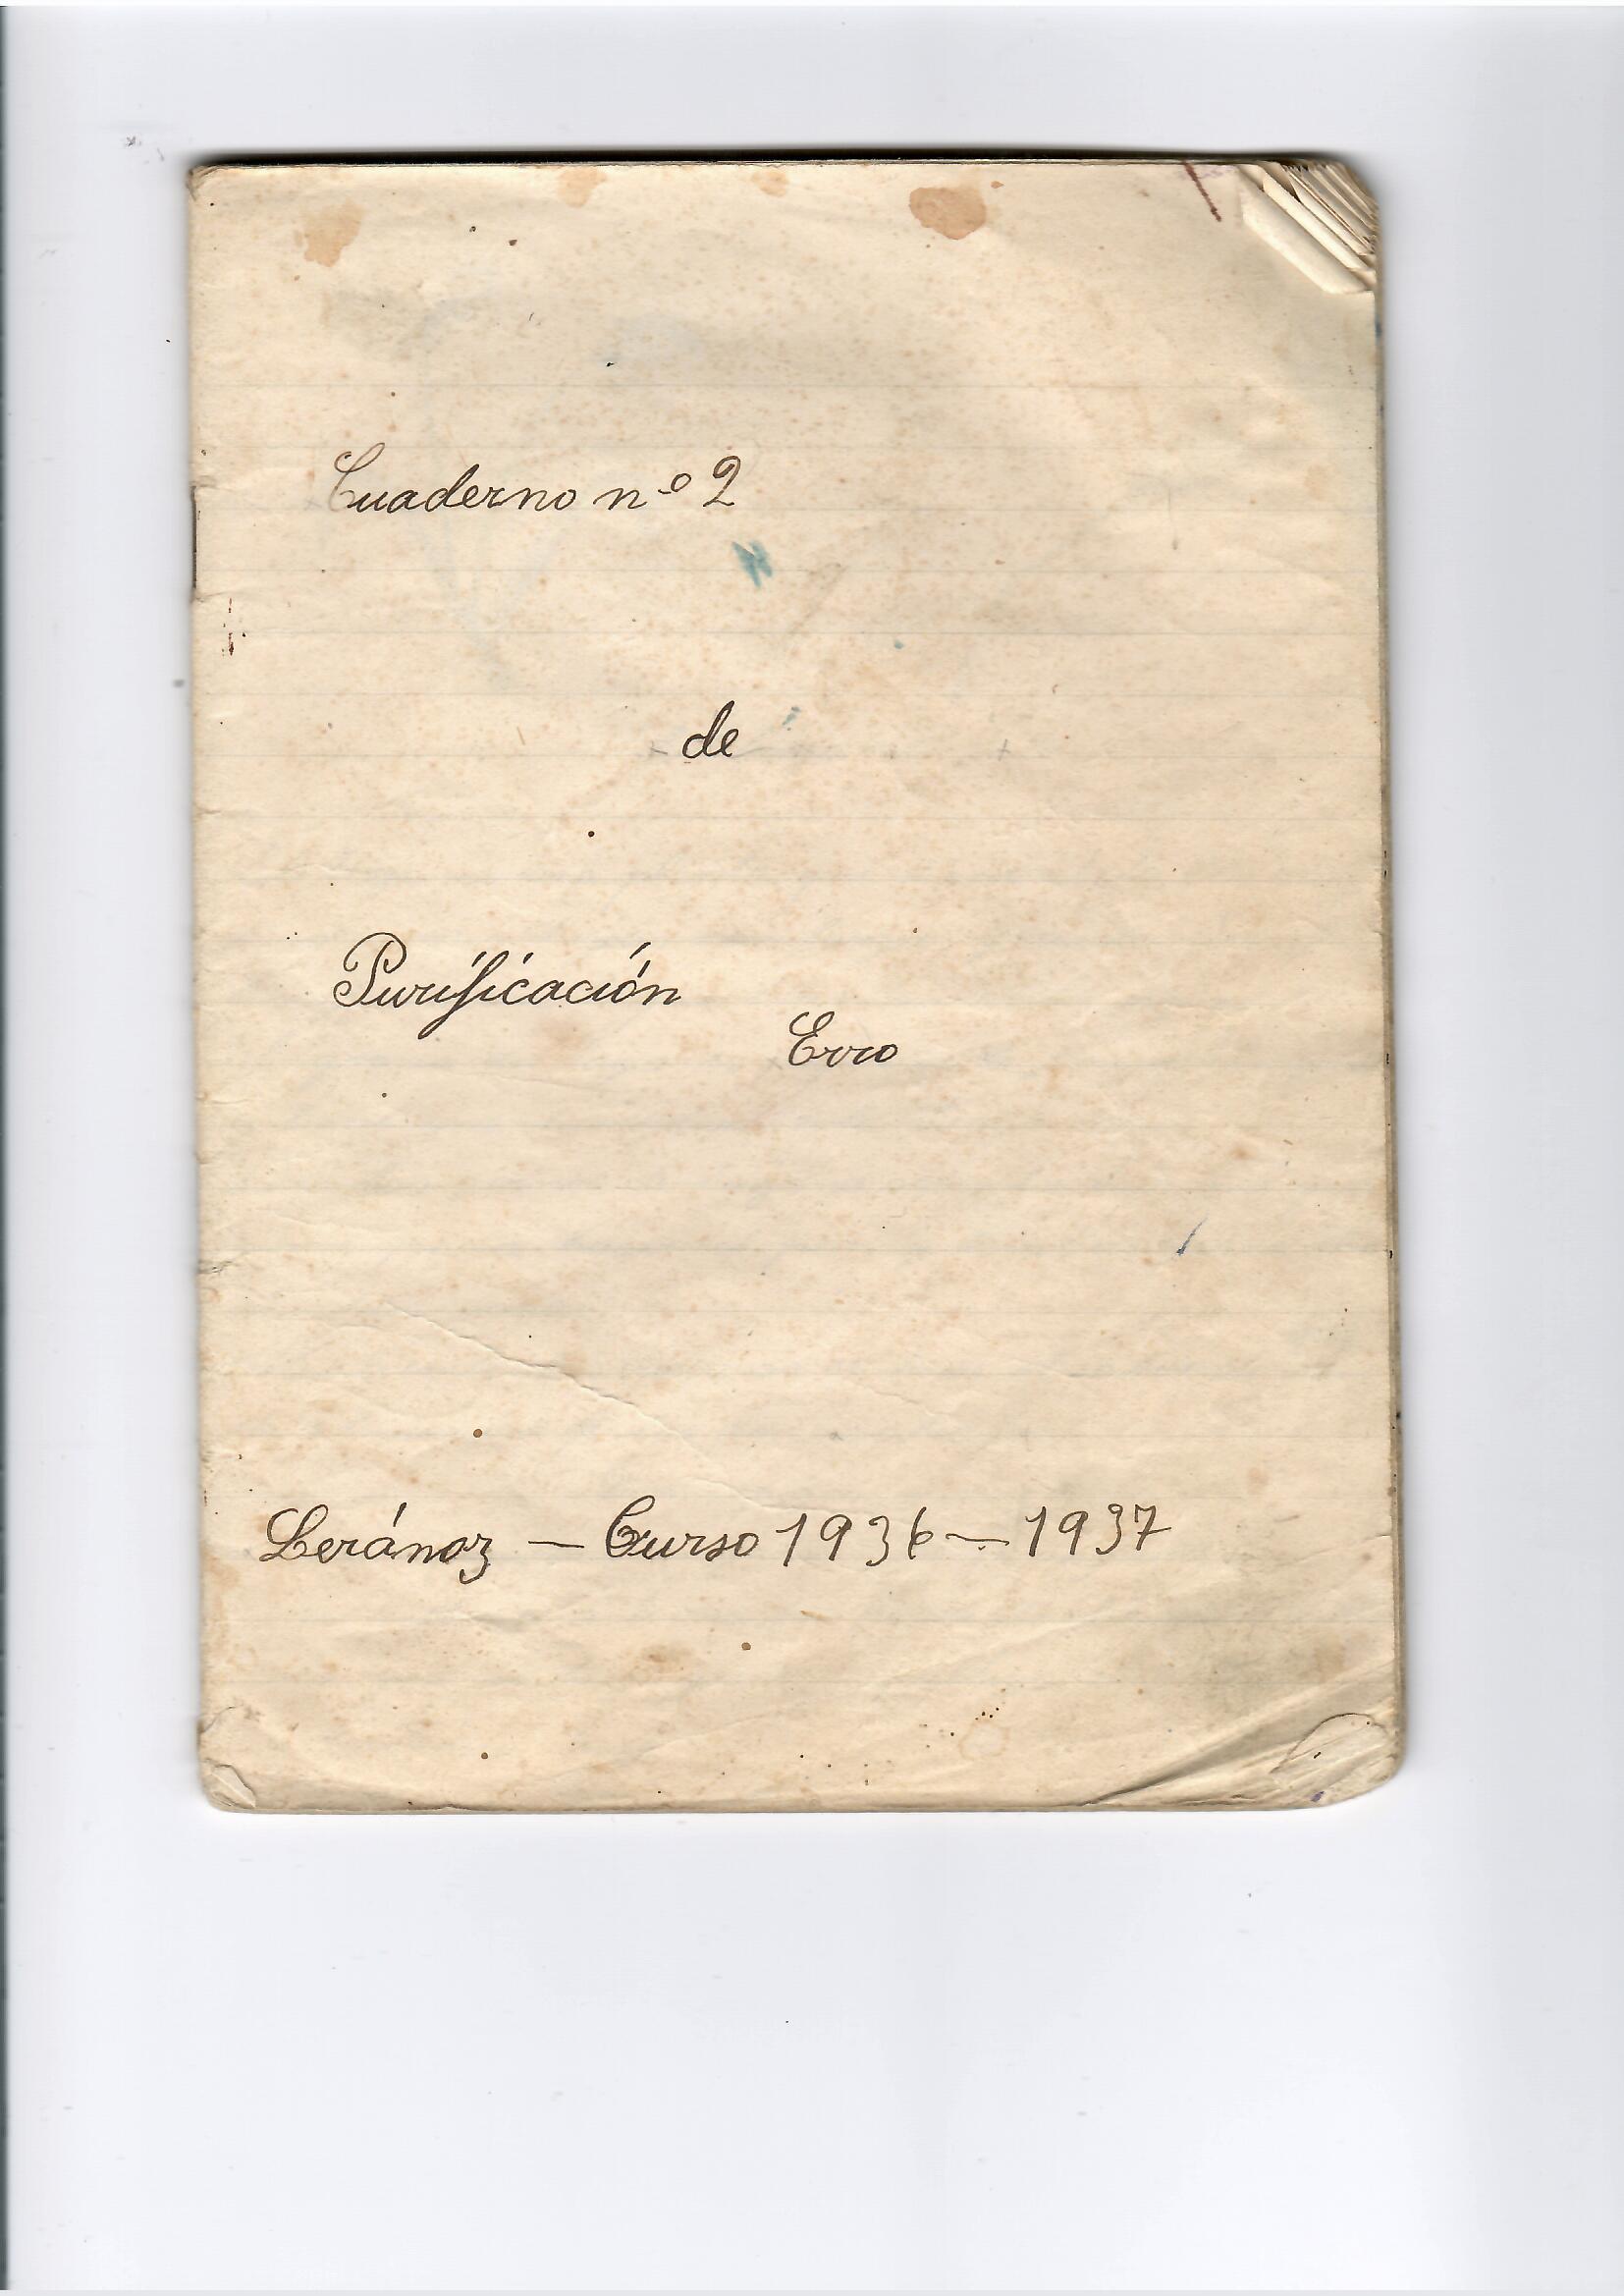 Cuaderno nº 2
de
Purificación
Erro
Leránoz — Curso 1936 — 1937